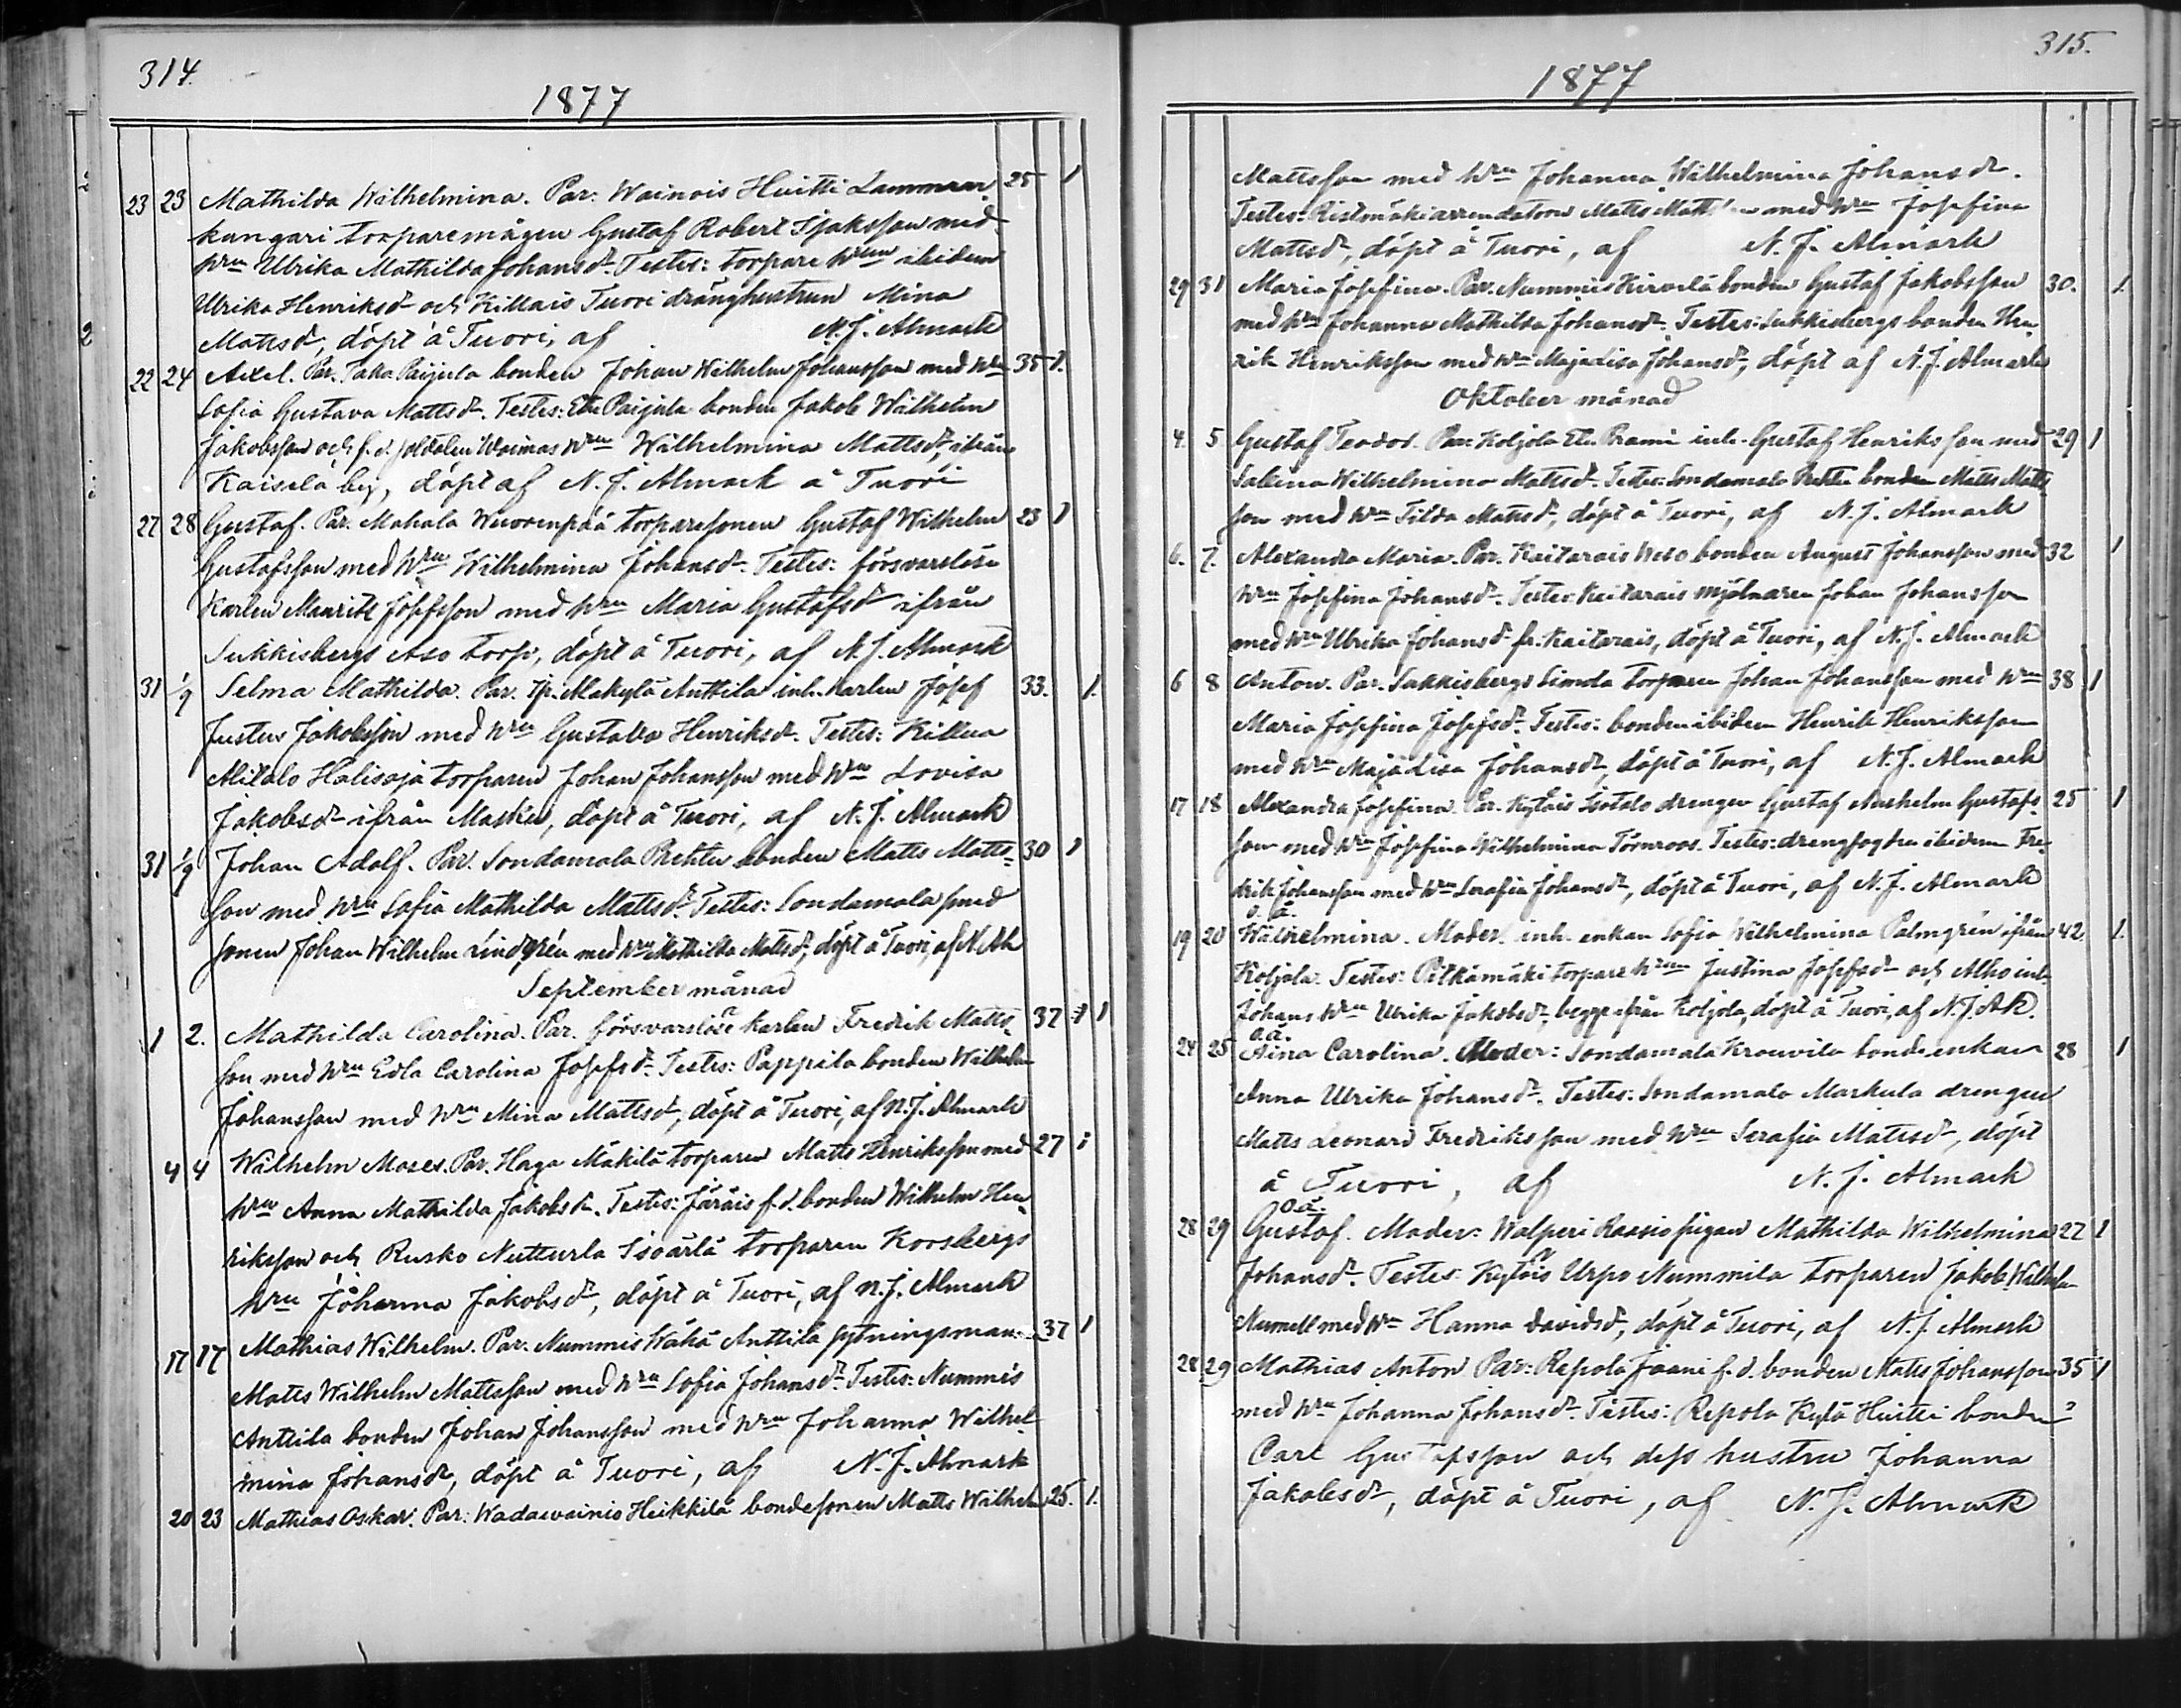 314.
1877
23 23 Mathilda Wilhelmina. Par: Wainois Huitti Lammran 25 1
kangari torparemågen Gustaf Robert Isaksson med
hru Ulrika Mathilda Johansdr. Testes: torpare hrun ibidem
Ulrika Henriksdr och Killais Tuori dränghustrun Mina
Mattsdr, döpt å Tuori, af N. J. Almark
22 24 Axel. Par. Taka Paijula bonden Johan Wilhelm Johansson med hru 35 1.
Sofia Gustava Mattsdr. Testes: Etu Paijula bonden Jakob Wilhelm
Jakobsson och f. d. soldaten Woimas hru Wilhelmina Mattsdr, ifrån
Kaisela by, döpt af N. J. Almark å Tuori
27 28 Gustaf. Par. Mahala Wuorenpää torparesonen Gustaf Wilhelm 23 1
Gustafsson med hru Wilhelmina Johansdr. Testes: försvarslöse
Karlen Maurits Josefsson med hru Maria Gustafsdr ifrån
Sukkisbergs Aso torp, döpt å Tuori, af N. J. Almark
31 1/9 Selma Mathilda. Par. Yli Makylä Anttila inh. karlen Josef 33. 1.
Justus Jakobsson med hru Gustava Henriksdr. Testes: Killua
Alitalo Halisoja torparen Johan Johansson med hru Lovisa
Jakobsdr ifrån Masku, döpt å Tuori, af N. J. Almark
31 1/9 Johan Adolf. Par. Sondamala Prehti bonden Matts Matts- 30 1
son med hru Sofia Mathilda Mattsdr. Testes: Sondamala smed
sonen Johan Wilhelm Lindgrén med hru Mathilda Mattsdr, döpt å Tuori, af N. Ak
September månad
1 2. Mathilda Carolina. Par. försvarslöse karlen Fredrik Matts- 37 1
son med hru Edla Carolina Josefsdr. Testes: Pappila bonden Wilhelm
Johansson med hru Mina Mattsdr, döpt å Tuori, af N. J. Almark
4 4 Wilhelm Moses. Par. Haga Mäkilä torparen Matts Henriksson med 27 1
hru Anna Mathilda Jakobsdr. Testes: Järäis f. d. bonden Wilhelm Hen-
riksson och Rusko Nutturla Isoärlä torparen Korsbergs
hru Johanna Jakobsdr, döpt å Tuori, af N. J. Almark
17 17 Mathias Wilhelm. Par. Nummis Wähä Anttila sytningsman 37 1
Matts Wilhelm Mattsson med hru Sofia Johansdr. Testes: Nummis
Anttila bonden Johan Johansson med hru Johanna Wilhel-
mina Johansdr, döpt å Tuori, af N. J. Almark
20 23 Mathias Oskar. Par: Wadawainio Heikkilä bondesonen Matts Wilhelm 25. 1.
315.
1877
Mattsson med hru Johanna Wilhelmina Johansdr.
Testes: Ristmäki arrendatorn Matts Mattsson med hru Josefina
Mattsdr, döpt å Tuori, af N. J. Almark
29 31 Maria Josefina. Par. Nummis Hirvelä bonden Gustaf Jakobsson 30. 1.
med hru Johanna Mathilda Johansdr. Testes: Sukkisbergs bonden Hen-
rik Henriksson med hru Maja Lisa Johansdr, döpt af N. J. Almark
Oktober månad
4. 5 Gustaf Teodor. Par: Koljola Etu Prami inh. Gustaf Henriksson med 29 1
Sabina Wilhelmina Mattsdr. Testes: Sondamala Prehti bonden Matts Matts
son med hru Tilda Mattsdr, döpt å Tuori, af N. J. Almark
6. 7. Alexandra Maria. Par. Kaitarais Uso bonden August Johansson med 32 1
hru Josefina Johansdr. Testes: Kaitarais mjölnaren Johan Johansson
med hru Ulrika Johansdr fr. Kaitarais, döpt å Tuori, af N. J. Almark
6 8 Anton. Par. Sukkisbergs Simola torparen Johan Johansson med hru 38 1
Maria Josefina Josefsdr. Testes: bonden ibidem Henrik Henriksson
med hru Maja Lisa Johansdr, döpt å Tuori, af N. J. Almark
17 18 Alexandra Josefina. Par. Kyläis Isotalo drengen Gustaf Anshelm Gustafs- 25 1
son med hru Josefina Wilhelmina Törnroos. Testes: drengfogden ibidem Fre-
drik Johansson med hru Serafia Johansdr, döpt å Tuori, af N. J. Almark
o. ä.
19 20 Wilhelmina. Moder: inh. enkan Sofia Wilhelmina Palmgrén ifrån 42 1.
Koljola. Testes: Pitkämäki torpare hrun Justina Josefsdr och Alho inh.
Johans hru Ulrika Jakobsdr, begge ifrån Koljola, döpt å Tuori, af N. J. Ak.
o. ä.
24 25 Aina Carolina. Moder: Sondamala Krouvila bondeenkan 28 1
Anna Ulrika Johansdr. Testes: Sondamala Markula drengen
Matts Leonard Fredriksson med hru Serafia Mattsdr, döpt
å Tuori, af N. J. Almark
o. ä.
28 29 Gustaf. Moder: Walperi Raasio pigan Mathilda Wilhelmina 22 1
Johansdr. Testes: Kyläis Urpo Nummila torparen Jakob Wilhelm
Numell med hru Hanna Davidsdr, döpt å Tuori, af N. J. Almark
28 29 Mathias Anton Par: Repola Jaani f. d. bonden Matts Johansson 35 1
med hru Johanna Johansdr. Testes: Repola Kylä Huitti bonden
Carl Gustafsson och dess hustru Johanna
Jakobsdr, döpt å Tuori, af N. J. Almark